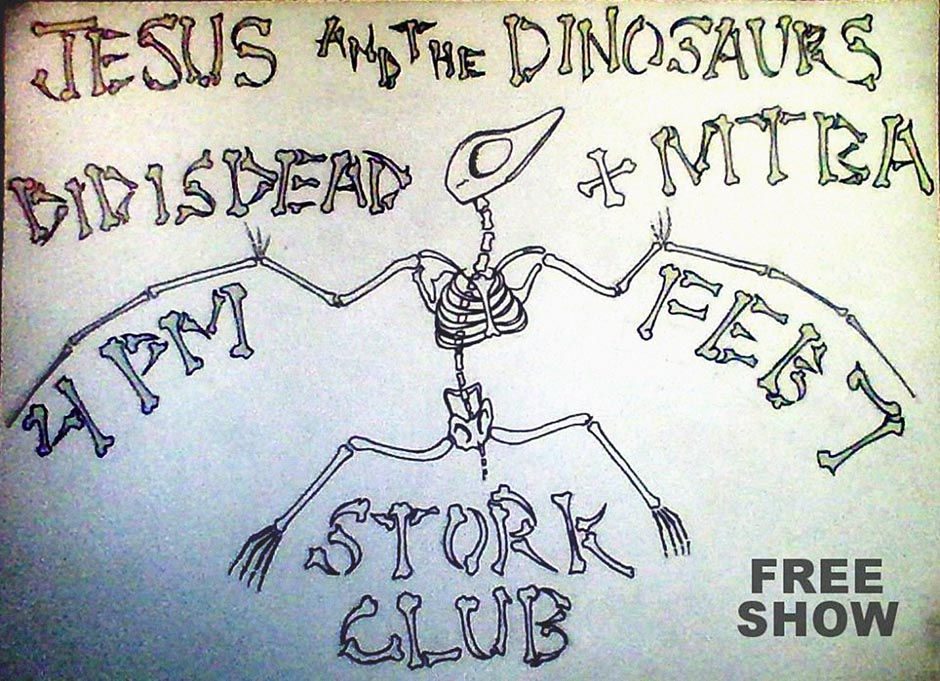 JESUS AND THE DINOSAURS
IS DEAD + MTBA
4 PM FEB 7
STORK
CLUB
FREE
SHOW